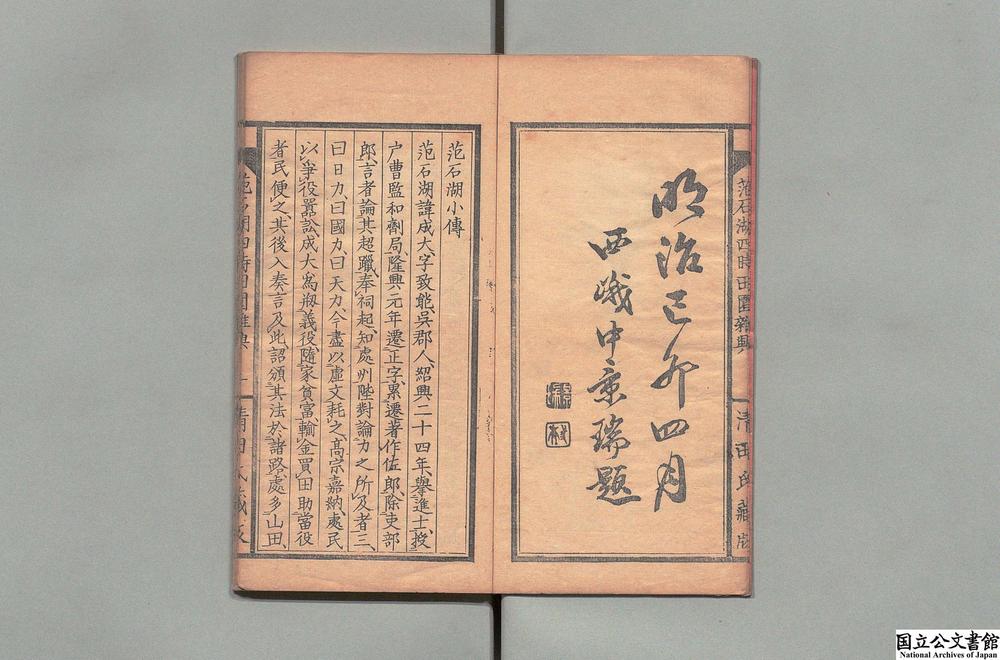 范石湖四時田園雜興
清田氏藏版
明治己卯四月
西峨中章瑞題
范石湖小傳
范石湖諱成大、字致能、吳郡人、紹興二十四年、擧進士、授
户曹監和劑局、隆興元年遷正字、累遷著作佐郎、除吏部
郎、言者論其超躐、奉祠起、知處州、陛對論力之所及者三、
曰日力、曰國力、曰天力、今盡以虛文耗之、高宗嘉納、處民
以爭役嚚訟、成大為刱義役、隨家貧富輸金買田助當役
者、民便之、其後入奏言及此、詔頒其法於諸路、處多山田、
范石湖四時田園雜興
一
清田氏藏版
国立公文書館
National Archives of Japan